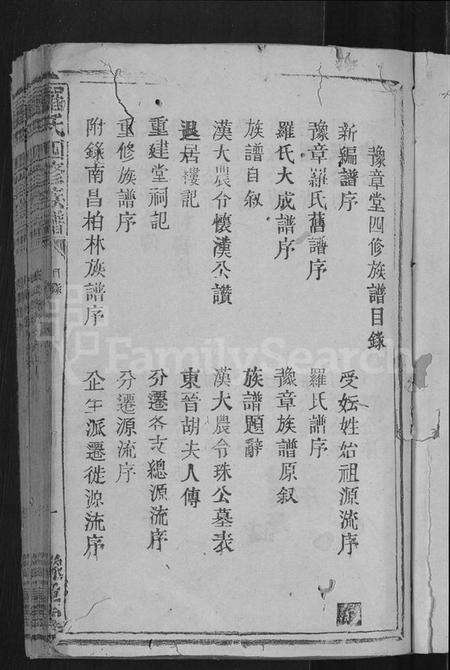 豫章堂四修族譜目錄
新編譜序
受妘姓始祖源流序
豫章羅氏舊譜序
羅氏譜序
羅氏大成譜序
豫章族譜原叙
族譜自叙
族譜題辭
漢大農令懷漢公讚
漢大農令珠公墓表
退居樓記
東晉胡夫人傳
重建堂祠記
分遷各支總源流序
重修族譜序
分遷源流序
附錄南昌柏林族譜序
企生派遷徙源流序
羅氏四修族譜
目錄
一
FamilySearch